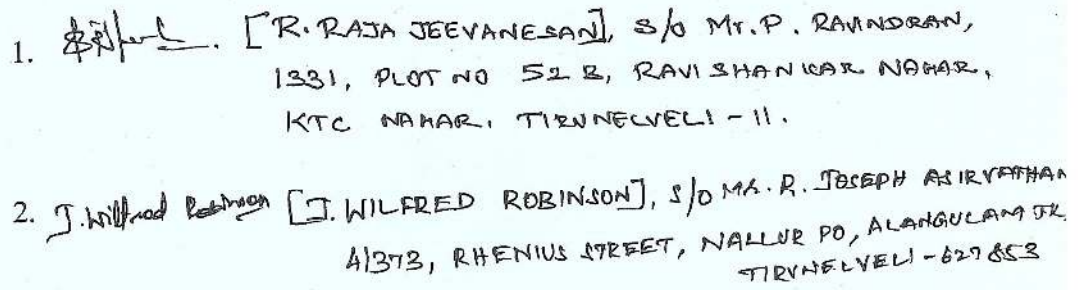 1. [R. RAJA JEEVANESAN], S/o Mr. P. RAVINDRAN,
1331, PLOT NO 52 B, RAVI SHANKAR NAGAR,
KTC NAGAR, TIRUNELVELI - 11.
2. J. Wilfred Robinson [J. WILFRED ROBINSON], S/o MR. R. JOSEPH ASIRVATHAM
4/373, RHENIUS STREET, NALLUR PO, ALANGULAM TK,
TIRUNELVELI - 627853